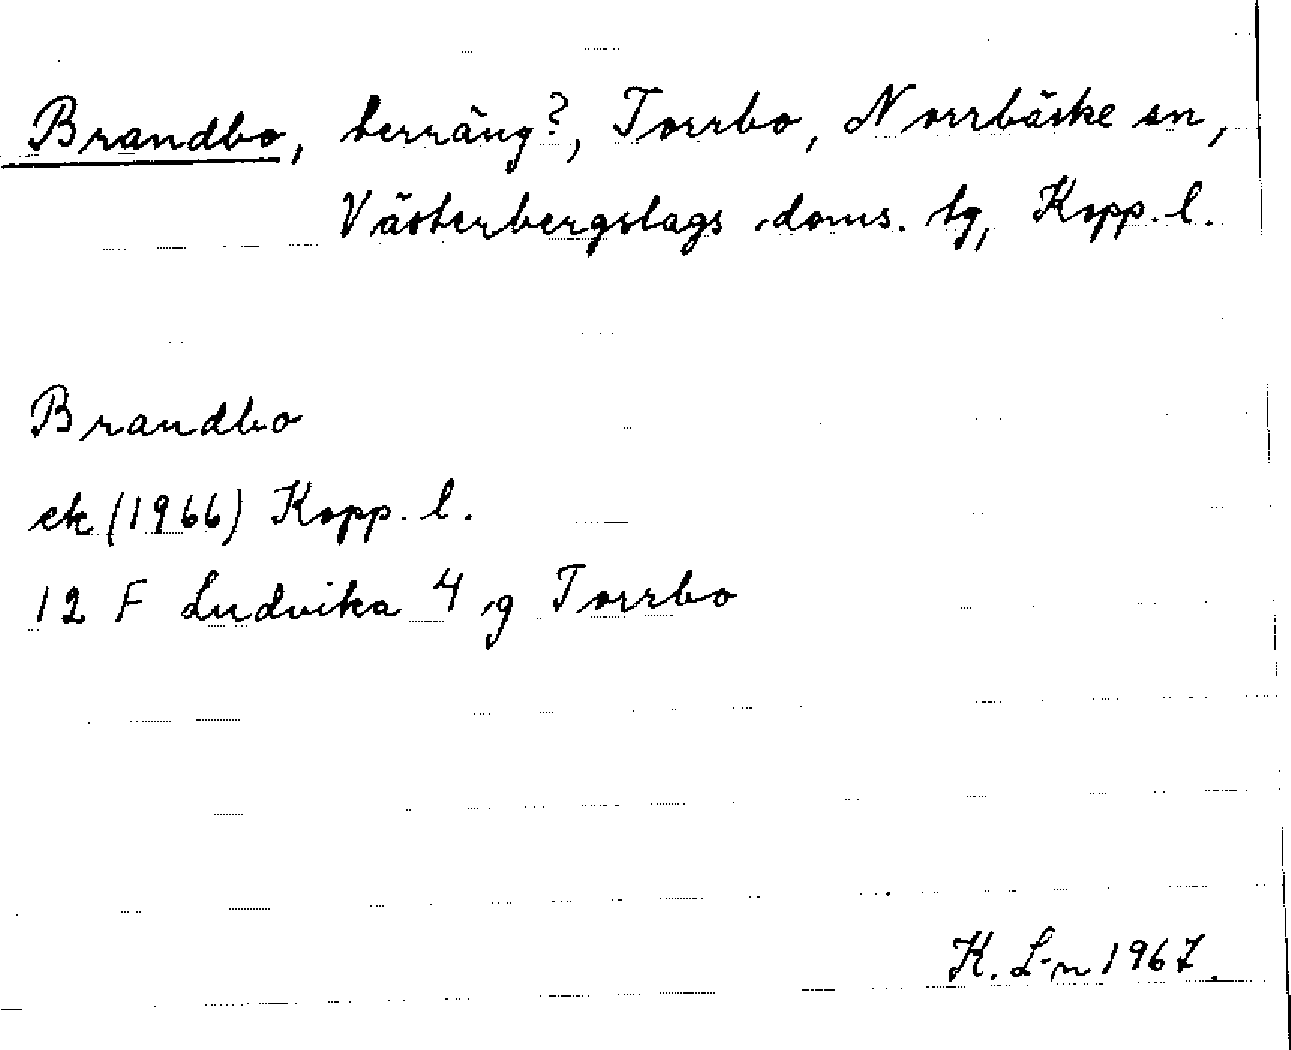 Brandbo, terräng?, Torrbo, Norrbärke sn,
Västerbergslags doms. tg, Kopp. l.
Brandbo
ek (1966) Kopp. l.
12 F Ludvika 4 g Torrbo
K. L-n 1967.